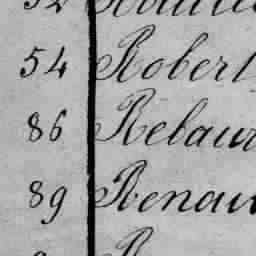 54 Robert
86 Rebaur
89 Renau